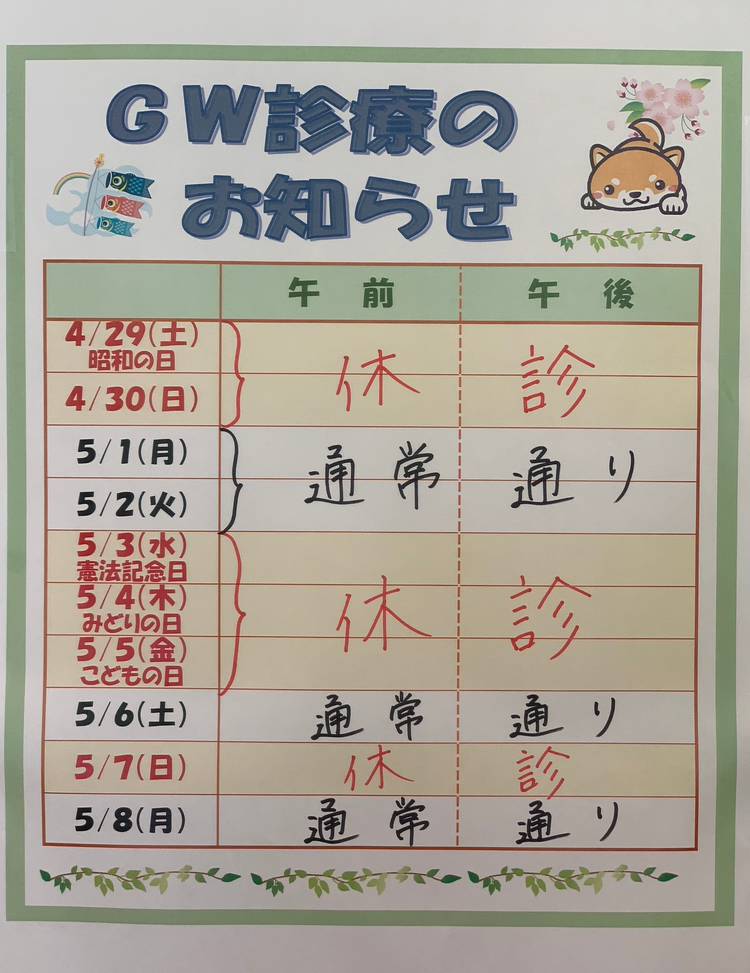 GW診療の
お知らせ
午前 午後
4/29(土)
昭和の日
4/30(日)
休診
5/1(月)
5/2(火)
通常通り
5/3(水)
憲法記念日
5/4(木)
みどりの日
5/5(金)
こどもの日
休診
5/6(土) 通常通り
5/7(日) 休診
5/8(月) 通常通り